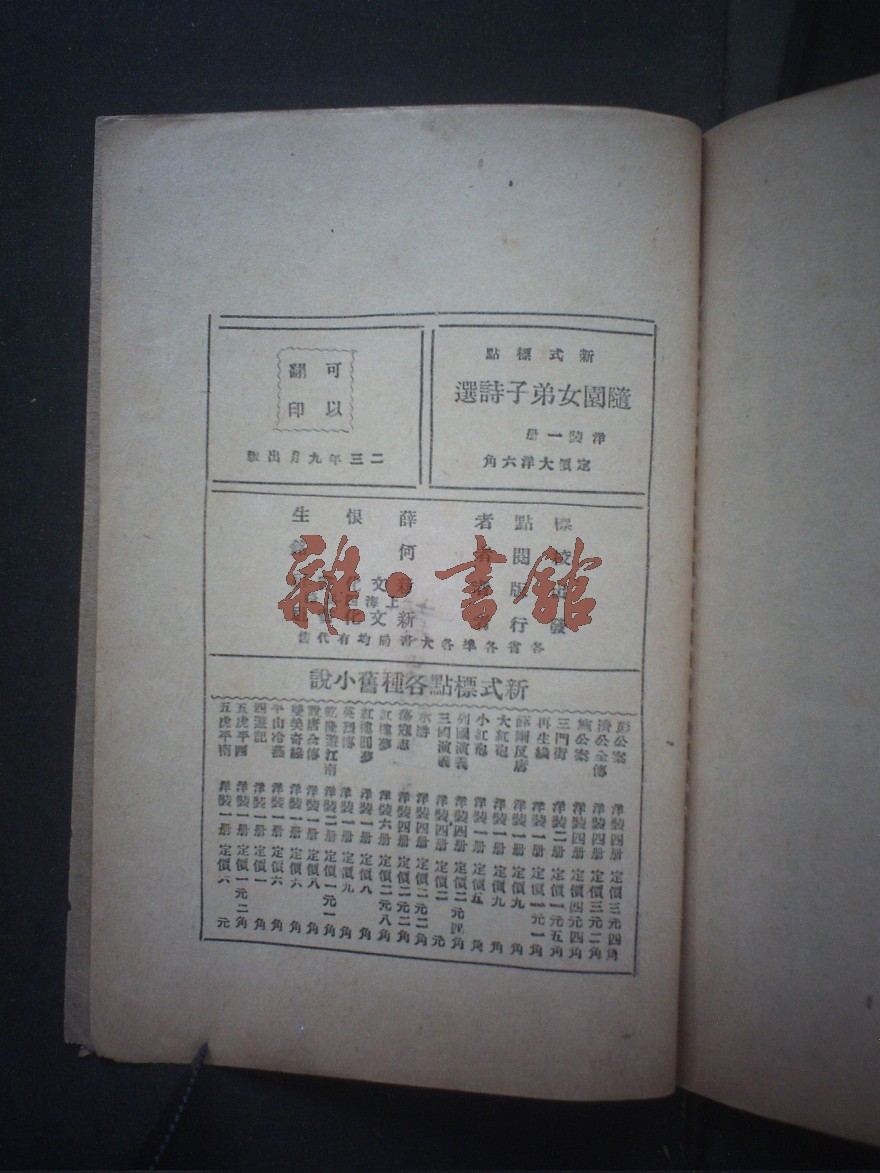 新式標點
隨園女弟子詩選
洋裝一册
定價大洋六角
可以
翻印
二三年九月出版
標點者 薛恨生
校閱者 何
版 新文
上海
發行 新文化
各省各埠各大書局均有代售
雜·書館
新式標點各種舊小說
彭公案 洋裝四册 定價三元四角
濟公全傳 洋裝四册 定價三元二角
施公案 洋裝四册 定價四元四角
三門街 洋裝二册 定價一元五角
再生緣 洋裝一册 定價一元一角
薛剛反唐 洋裝一册 定價九角
大紅袍 洋裝一册 定價九角
小紅袍 洋裝一册 定價五角
列國演義 洋裝四册 定價二元四角
三國演義 洋裝四册 定價二元
水滸 洋裝四册 定價二元二角
蕩寇志 洋裝四册 定價二元二角
紅樓夢 洋裝六册 定價二元八角
紅樓圓夢 洋裝一册 定價八角
英烈傳 洋裝一册 定價九角
乾隆遊江南 洋裝二册 定價一元一角
說唐全傳 洋裝一册 定價八角
雙美奇緣 洋裝一册 定價六角
平山冷燕 洋裝一册 定價六角
四遊記 洋裝一册 定價一角
五虎平西 洋裝一册 定價一元二角
五虎平南 洋裝一册 定價六元